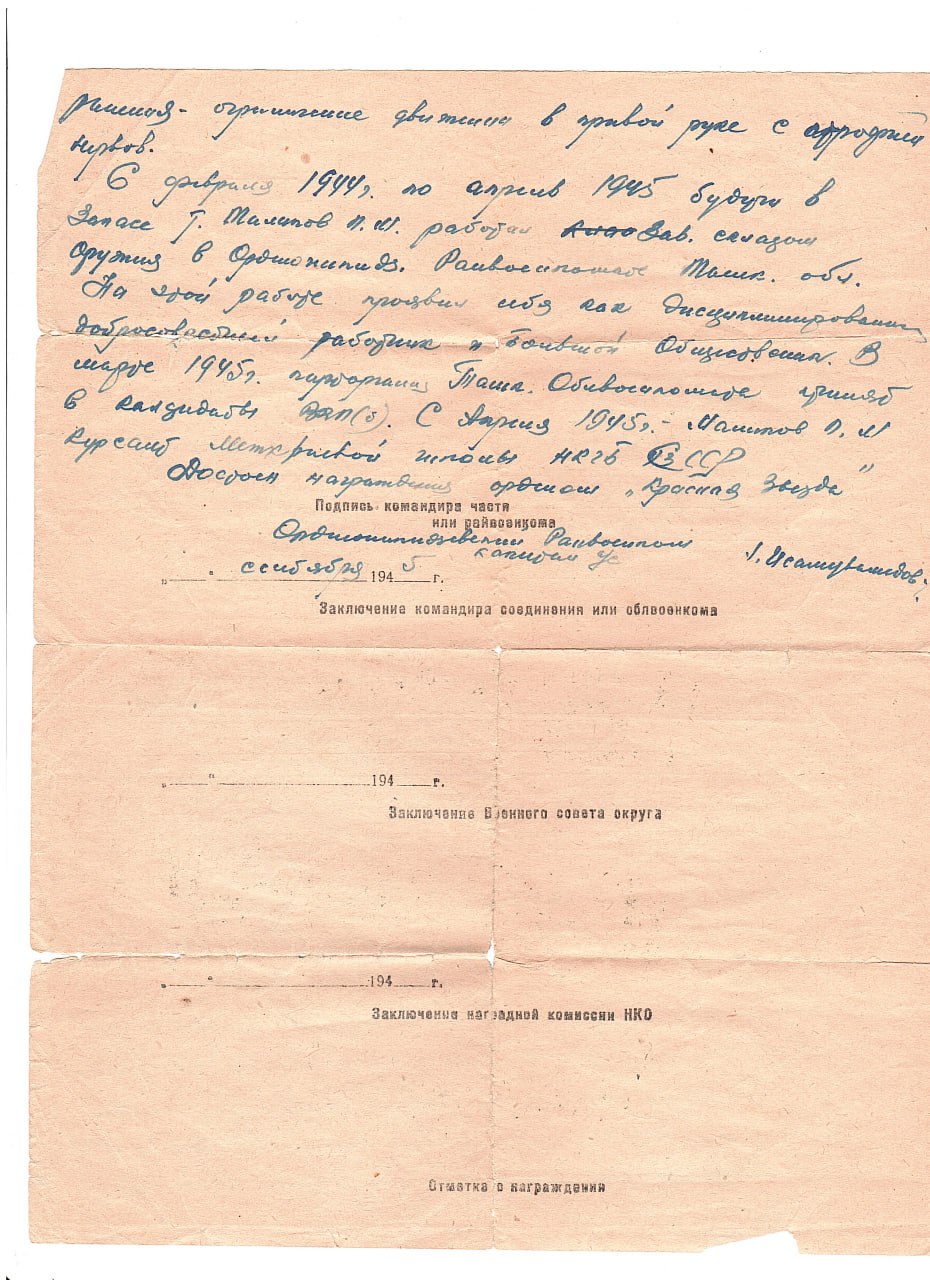 ограничение движения в правой руке с атрофией
нервов.
С февраля 1944г. по апрель 1945 будучи в
Запасе т. П. М. работал Зав. складом
Оружия в Орджоникидз. Райвоенкомате Ташк. обл.
На этой работе проявил себя как дисциплинированный
добросовестный работник и Общественник. В
марте 1945г. Ташк. Облвоенкомате принят
в кандидаты ВКП(б). С Апреля 1945г. - Маликов П. М
Курсант школы НКГБ СССР
Достоен награждения орденом „Красная Звезда"
Подпись командира части
или райвоенкома
Орджоникидзевский Райвоенком
капитан
„ " сентября 1945 г.
Заключение командира соединения или облвоенкома
„ " 194 г.
Заключение Военного совета округа
„ " 194 г.
Заключение наградной комиссии НКО
Отметка о награждении